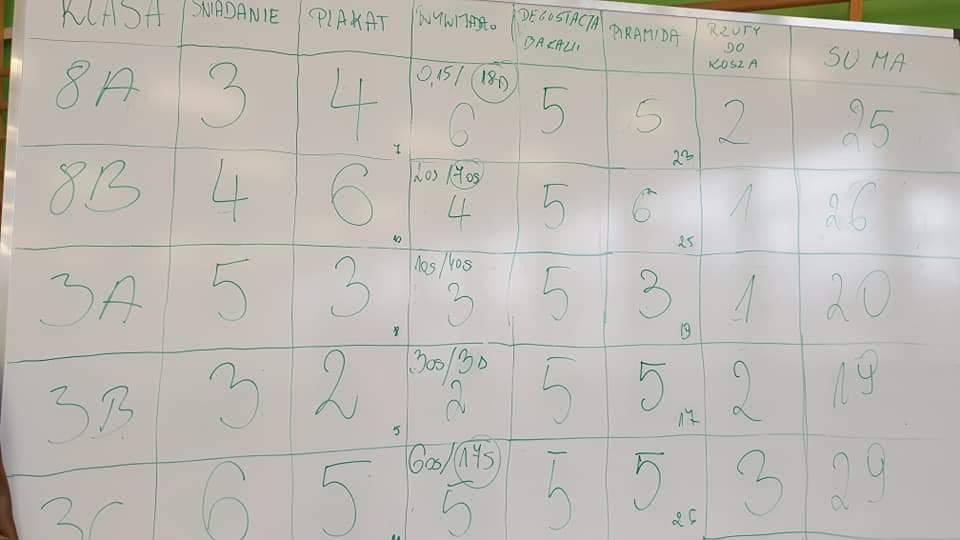 KLASA ŚNIADANIE PLAKAT DEGUSTACJA BAKALII PIRAMIDA RZUTY DO KOSZA SUMA
8A 3 4 7 0,15/ 18s 6 5 5 23 2 25
8B 4 6 10 20s/70s 4 5 6 25 1 26
3A 5 3 8 10s/40s 3 5 3 19 1 20
3B 3 2 5 30s/3s 2 5 5 17 2 19
3C 6 5 11 60s/17s 5 5 5 26 3 29